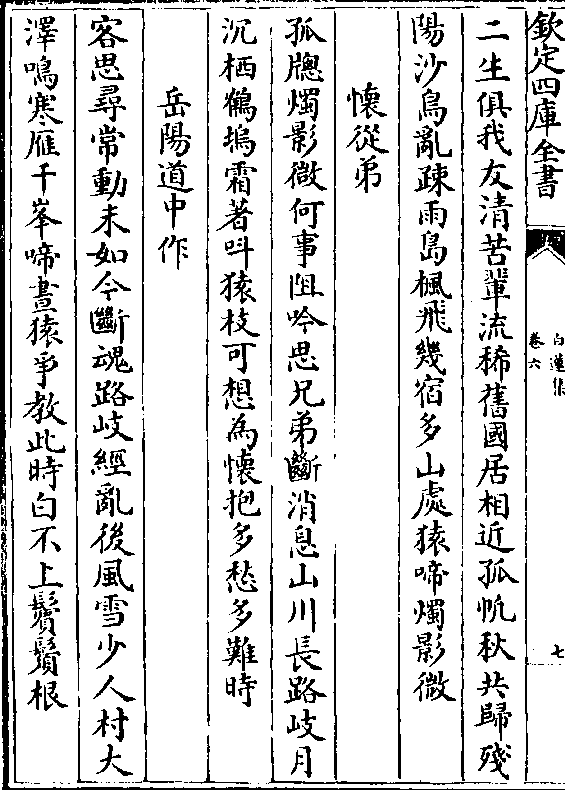 欽定四庫全書
白蓮集
卷六
七
二生俱我友清苦輩流稀舊國居相近孤帆秋共歸殘
陽沙鳥亂疎雨島楓飛幾宿多山處猿啼燭影微
懷從弟
孤牕燭影微何事阻吟思兄弟斷消息山川長路岐月
沉栖鶴塢霜著呌猿枝可想為懷抱多愁多難時
岳陽道中作
客思尋常動未如今斷魂路岐經亂後風雪少人村大
澤鳴寒雁千峯啼晝猿爭教此時白不上鬢鬚根